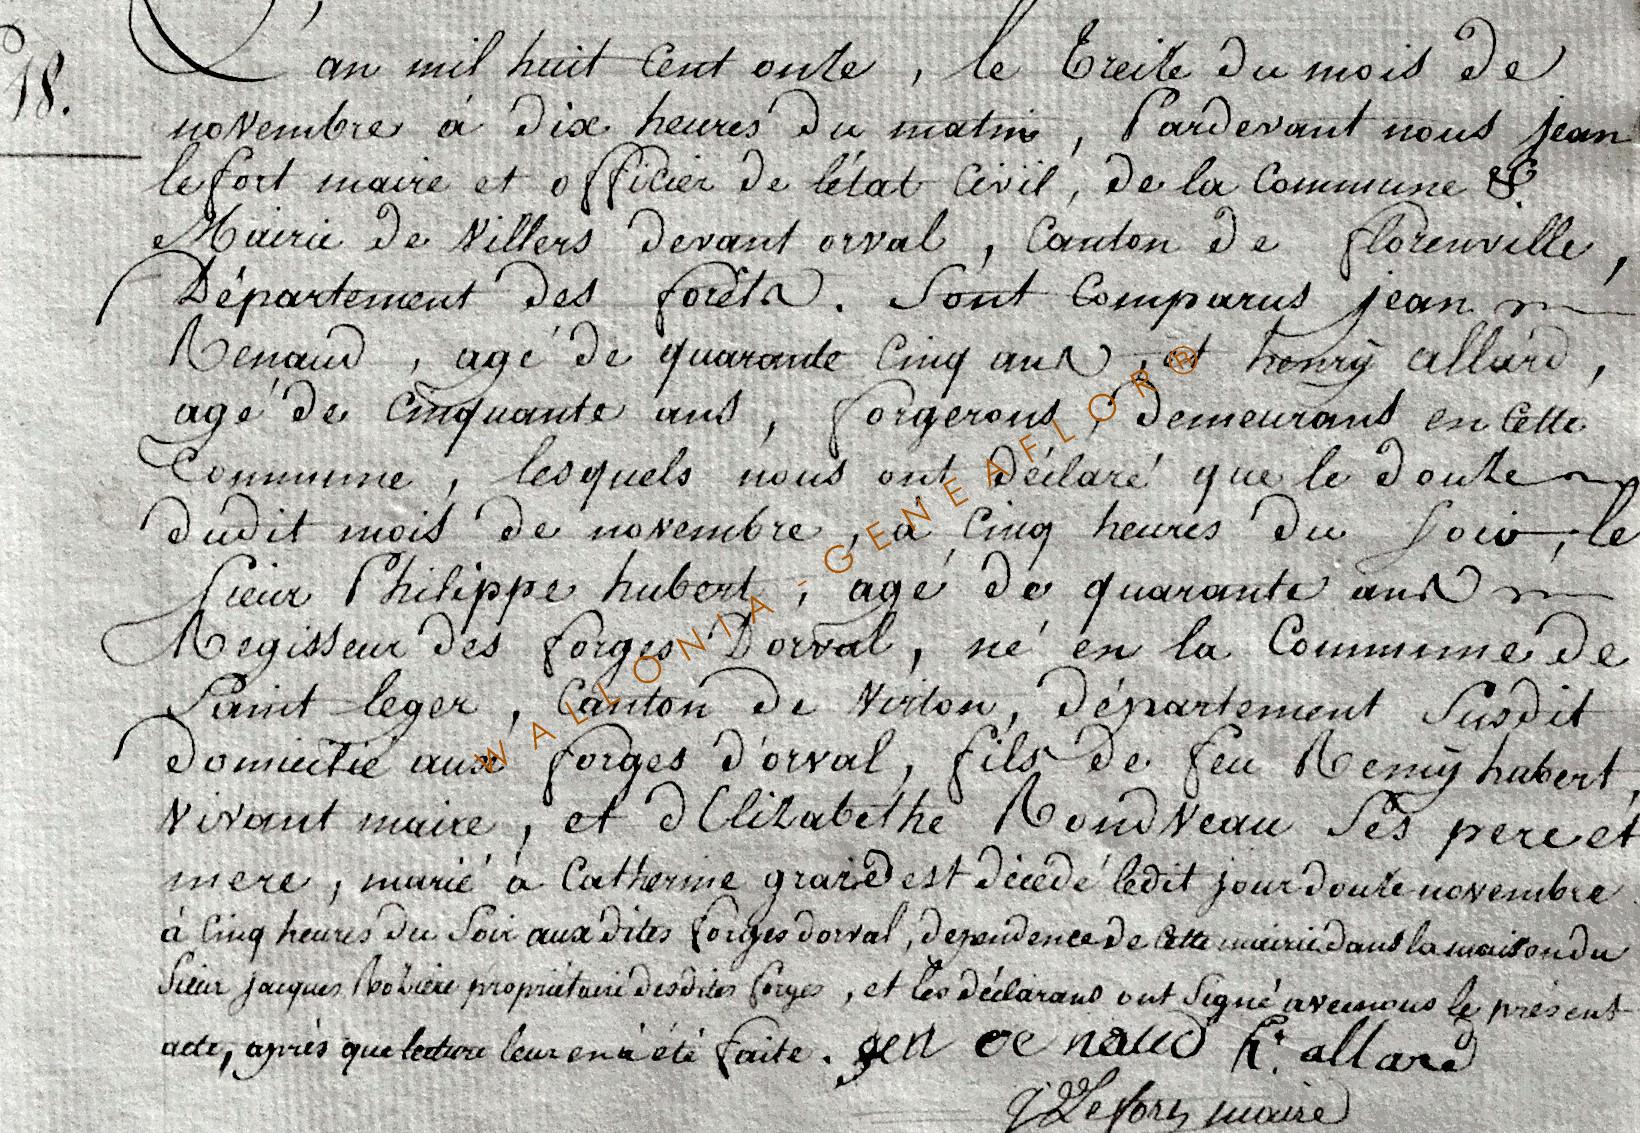 18.
L'an mil huit Cent onze, le treize du mois de
novembre à dix heures du matin, Pardevant nous jean
lefort maire et officier de l'état Civil, de la Commune &
Mairie de Villers devant orval, Canton de florenville,
Département des forêts. Sont Comparus jean
Renaud, agé de quarante Cinq ans, et henrÿ allard,
agé de Cinquante ans, forgerons, demeurans en Cette
Commune, lesquels nous ont déclaré que le douze
dudit mois de novembre, à Cinq heures du Soir, le
Sieur Philippe hubert, agé de quarante ans
Regisseur des forges D'orval, né en la Commune de
Saint leger, Canton de Virton, département Susdit
domicilié aux forges d'orval, fils de feu Remÿ hubert,
vivant maire, et d'Elizabethe Rondveau Ses pere et
mere, marié à Catherine est décédé ledit jour douze novembre
à Cinq heures du Soir aux dites forges dorval, dependence de Cette mairie dans la maison du
Sieur jacques propriétaire desdites forges, et les déclarans ont Signé avec nous le présent
acte, après que lecture leur en à été faite. jen renaud h. allard
J Lefort maire
WALLONIA - GENEAFLOR®